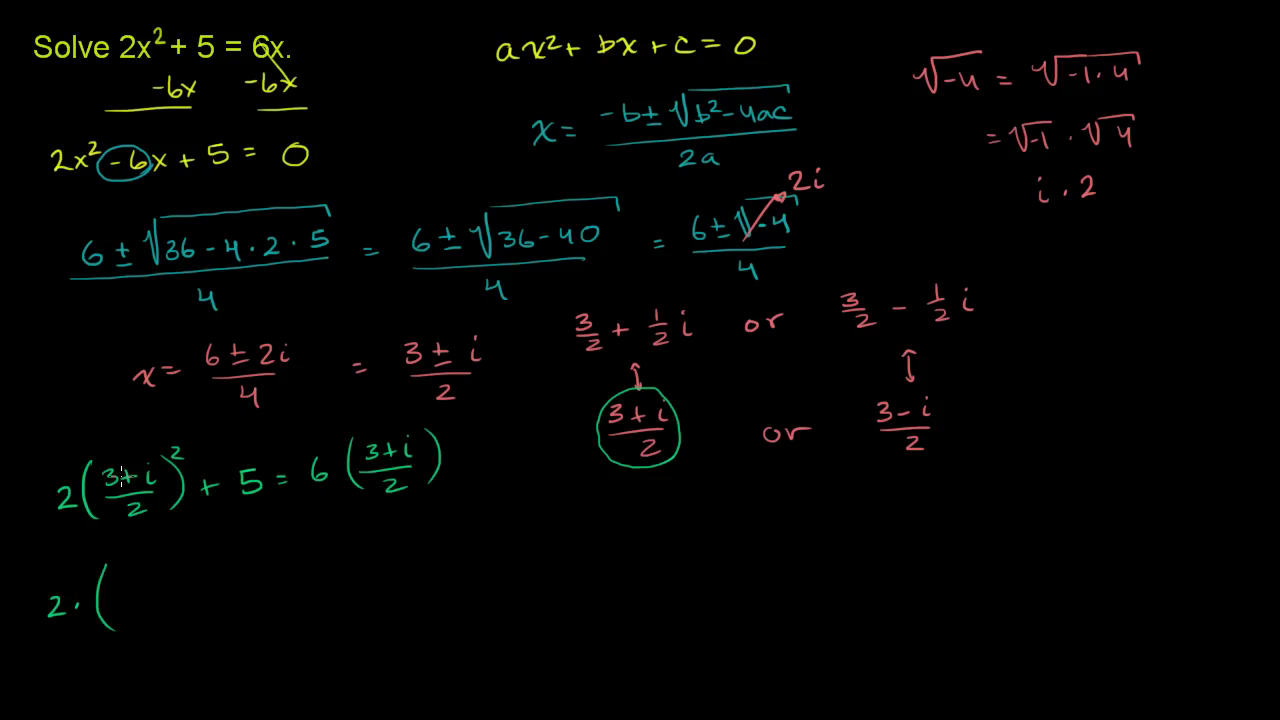 Solve 2x² + 5 = 6x.
-6x -6x
2x² - 6x + 5 = 0
ax² + bx + c = 0
x = (-b ± √(b² - 4ac)) / 2a
√-4 = √(-1 · 4)
= √-1 · √4
i · 2
(6 ± √(36 - 4 · 2 · 5)) / 4 = (6 ± √(36 - 40)) / 4 = (6 ± √-4) / 4
2i
x = (6 ± 2i) / 4 = (3 ± i) / 2
3/2 + 1/2 i or 3/2 - 1/2 i
(3 + i) / 2 or (3 - i) / 2
2((3 + i) / 2)² + 5 = 6((3 + i) / 2)
2 · (